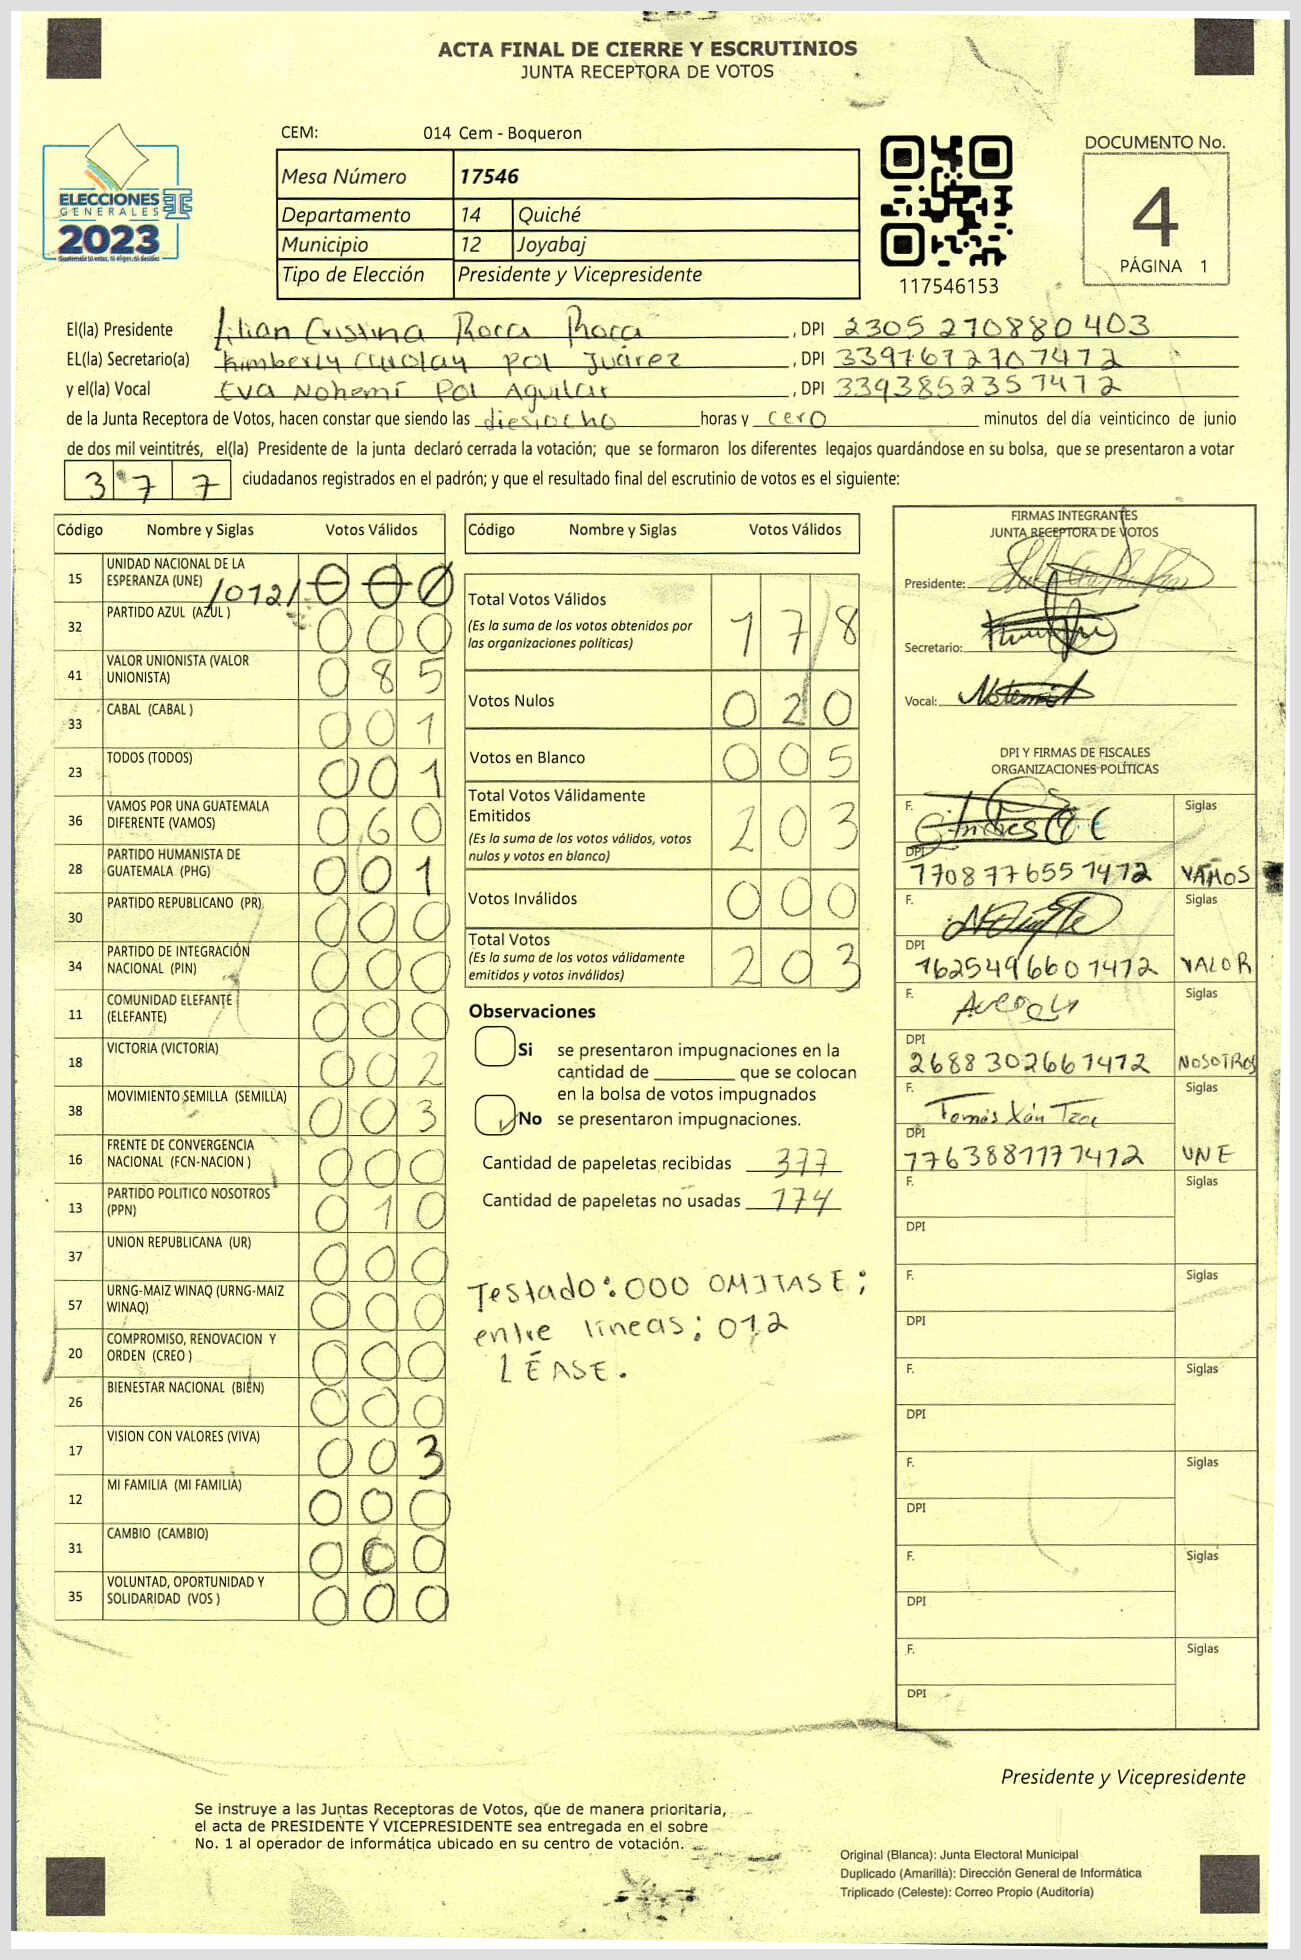 ACTA FINAL DE CIERRE Y ESCRUTINIOS
JUNTA RECEPTORA DE VOTOS
CEM: 014 Cem - Boqueron
ELECCIONES
GENERALES
2023
Mesa Número 17546
Departamento 14 Quiché
Municipio 12 Joyabaj
Tipo de Elección Presidente y Vicepresidente
117546153
DOCUMENTO No.
4
PÁGINA 1
El(la) Presidente Lilian Cristina Roca Roca , DPI 2305 270880403
EL(la) Secretario(a) Kimberly Pol Juárez , DPI 3397672707472
y el(la) Vocal Eva Nohemí Pol Aguilar , DPI 3393852357472
de la Junta Receptora de Votos, hacen constar que siendo las diesiocho horas y cero minutos del día veinticinco de junio
de dos mil veintitrés, el(la) Presidente de la junta declaró cerrada la votación; que se formaron los diferentes legajos guardándose en su bolsa, que se presentaron a votar
377 ciudadanos registrados en el padrón; y que el resultado final del escrutinio de votos es el siguiente:
Código Nombre y Siglas Votos Válidos
15 UNIDAD NACIONAL DE LA
ESPERANZA (UNE) /012/ 000
32 PARTIDO AZUL (AZUL ) 000
41 VALOR UNIONISTA (VALOR
UNIONISTA) 085
33 CABAL (CABAL ) 001
23 TODOS (TODOS) 001
36 VAMOS POR UNA GUATEMALA
DIFERENTE (VAMOS) 060
28 PARTIDO HUMANISTA DE
GUATEMALA (PHG) 001
30 PARTIDO REPUBLICANO (PR) 000
34 PARTIDO DE INTEGRACIÓN
NACIONAL (PIN) 000
11 COMUNIDAD ELEFANTE
(ELEFANTE) 000
18 VICTORIA (VICTORIA) 002
38 MOVIMIENTO SEMILLA (SEMILLA) 003
16 FRENTE DE CONVERGENCIA
NACIONAL (FCN-NACION ) 000
13 PARTIDO POLITICO NOSOTROS
(PPN) 010
37 UNION REPUBLICANA (UR) 000
57 URNG-MAIZ WINAQ (URNG-MAIZ
WINAQ) 000
20 COMPROMISO, RENOVACION Y
ORDEN (CREO ) 000
26 BIENESTAR NACIONAL (BIEN) 000
17 VISION CON VALORES (VIVA) 003
12 MI FAMILIA (MI FAMILIA) 000
31 CAMBIO (CAMBIO) 000
35 VOLUNTAD, OPORTUNIDAD Y
SOLIDARIDAD (VOS ) 000
Código Nombre y Siglas Votos Válidos
Total Votos Válidos 178
(Es la suma de los votos obtenidos por
las organizaciones políticas)
Votos Nulos 020
Votos en Blanco 005
Total Votos Válidamente
Emitidos 203
(Es la suma de los votos válidos, votos
nulos y votos en blanco)
Votos Inválidos 000
Total Votos 203
(Es la suma de los votos válidamente
emitidos y votos inválidos)
Observaciones
Si se presentaron impugnaciones en la
cantidad de ________ que se colocan
en la bolsa de votos impugnados
No se presentaron impugnaciones.
Cantidad de papeletas recibidas 377
Cantidad de papeletas no usadas 174
Testado: 000 OMITASE;
entre líneas; 012
LÉASE.
FIRMAS INTEGRANTES
JUNTA RECEPTORA DE VOTOS
Presidente:
Secretario:
Vocal:
DPI Y FIRMAS DE FISCALES
ORGANIZACIONES POLÍTICAS
F. Siglas
DPI
7708776557472 VAMOS
F. Siglas
DPI
7625496607472 VALOR
F. Siglas
DPI
2688302667472 NOSOTROS
F. Tomás Xón Tzoc Siglas
DPI
7763881177412 UNE
F. Siglas
DPI
F. Siglas
DPI
F. Siglas
DPI
F. Siglas
DPI
F. Siglas
DPI
F. Siglas
DPI
Presidente y Vicepresidente
Se instruye a las Juntas Receptoras de Votos, que de manera prioritaria,
el acta de PRESIDENTE Y VICEPRESIDENTE sea entregada en el sobre
No. 1 al operador de informática ubicado en su centro de votación.
Original (Blanca): Junta Electoral Municipal
Duplicado (Amarilla): Dirección General de Informática
Triplicado (Celeste): Correo Propio (Auditoría)